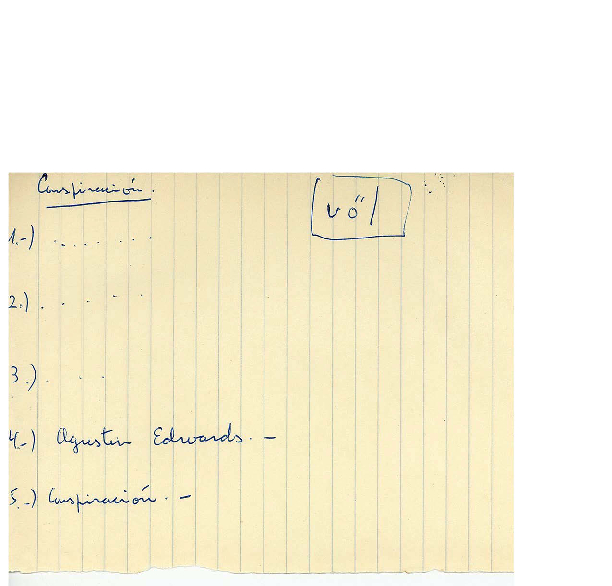 Conspiración.
vö/
1.-) . . . . . . .
2.) . . . . .
3.) . . .
4.-) Agustin Edwards. -
5.-) Conspiración. -